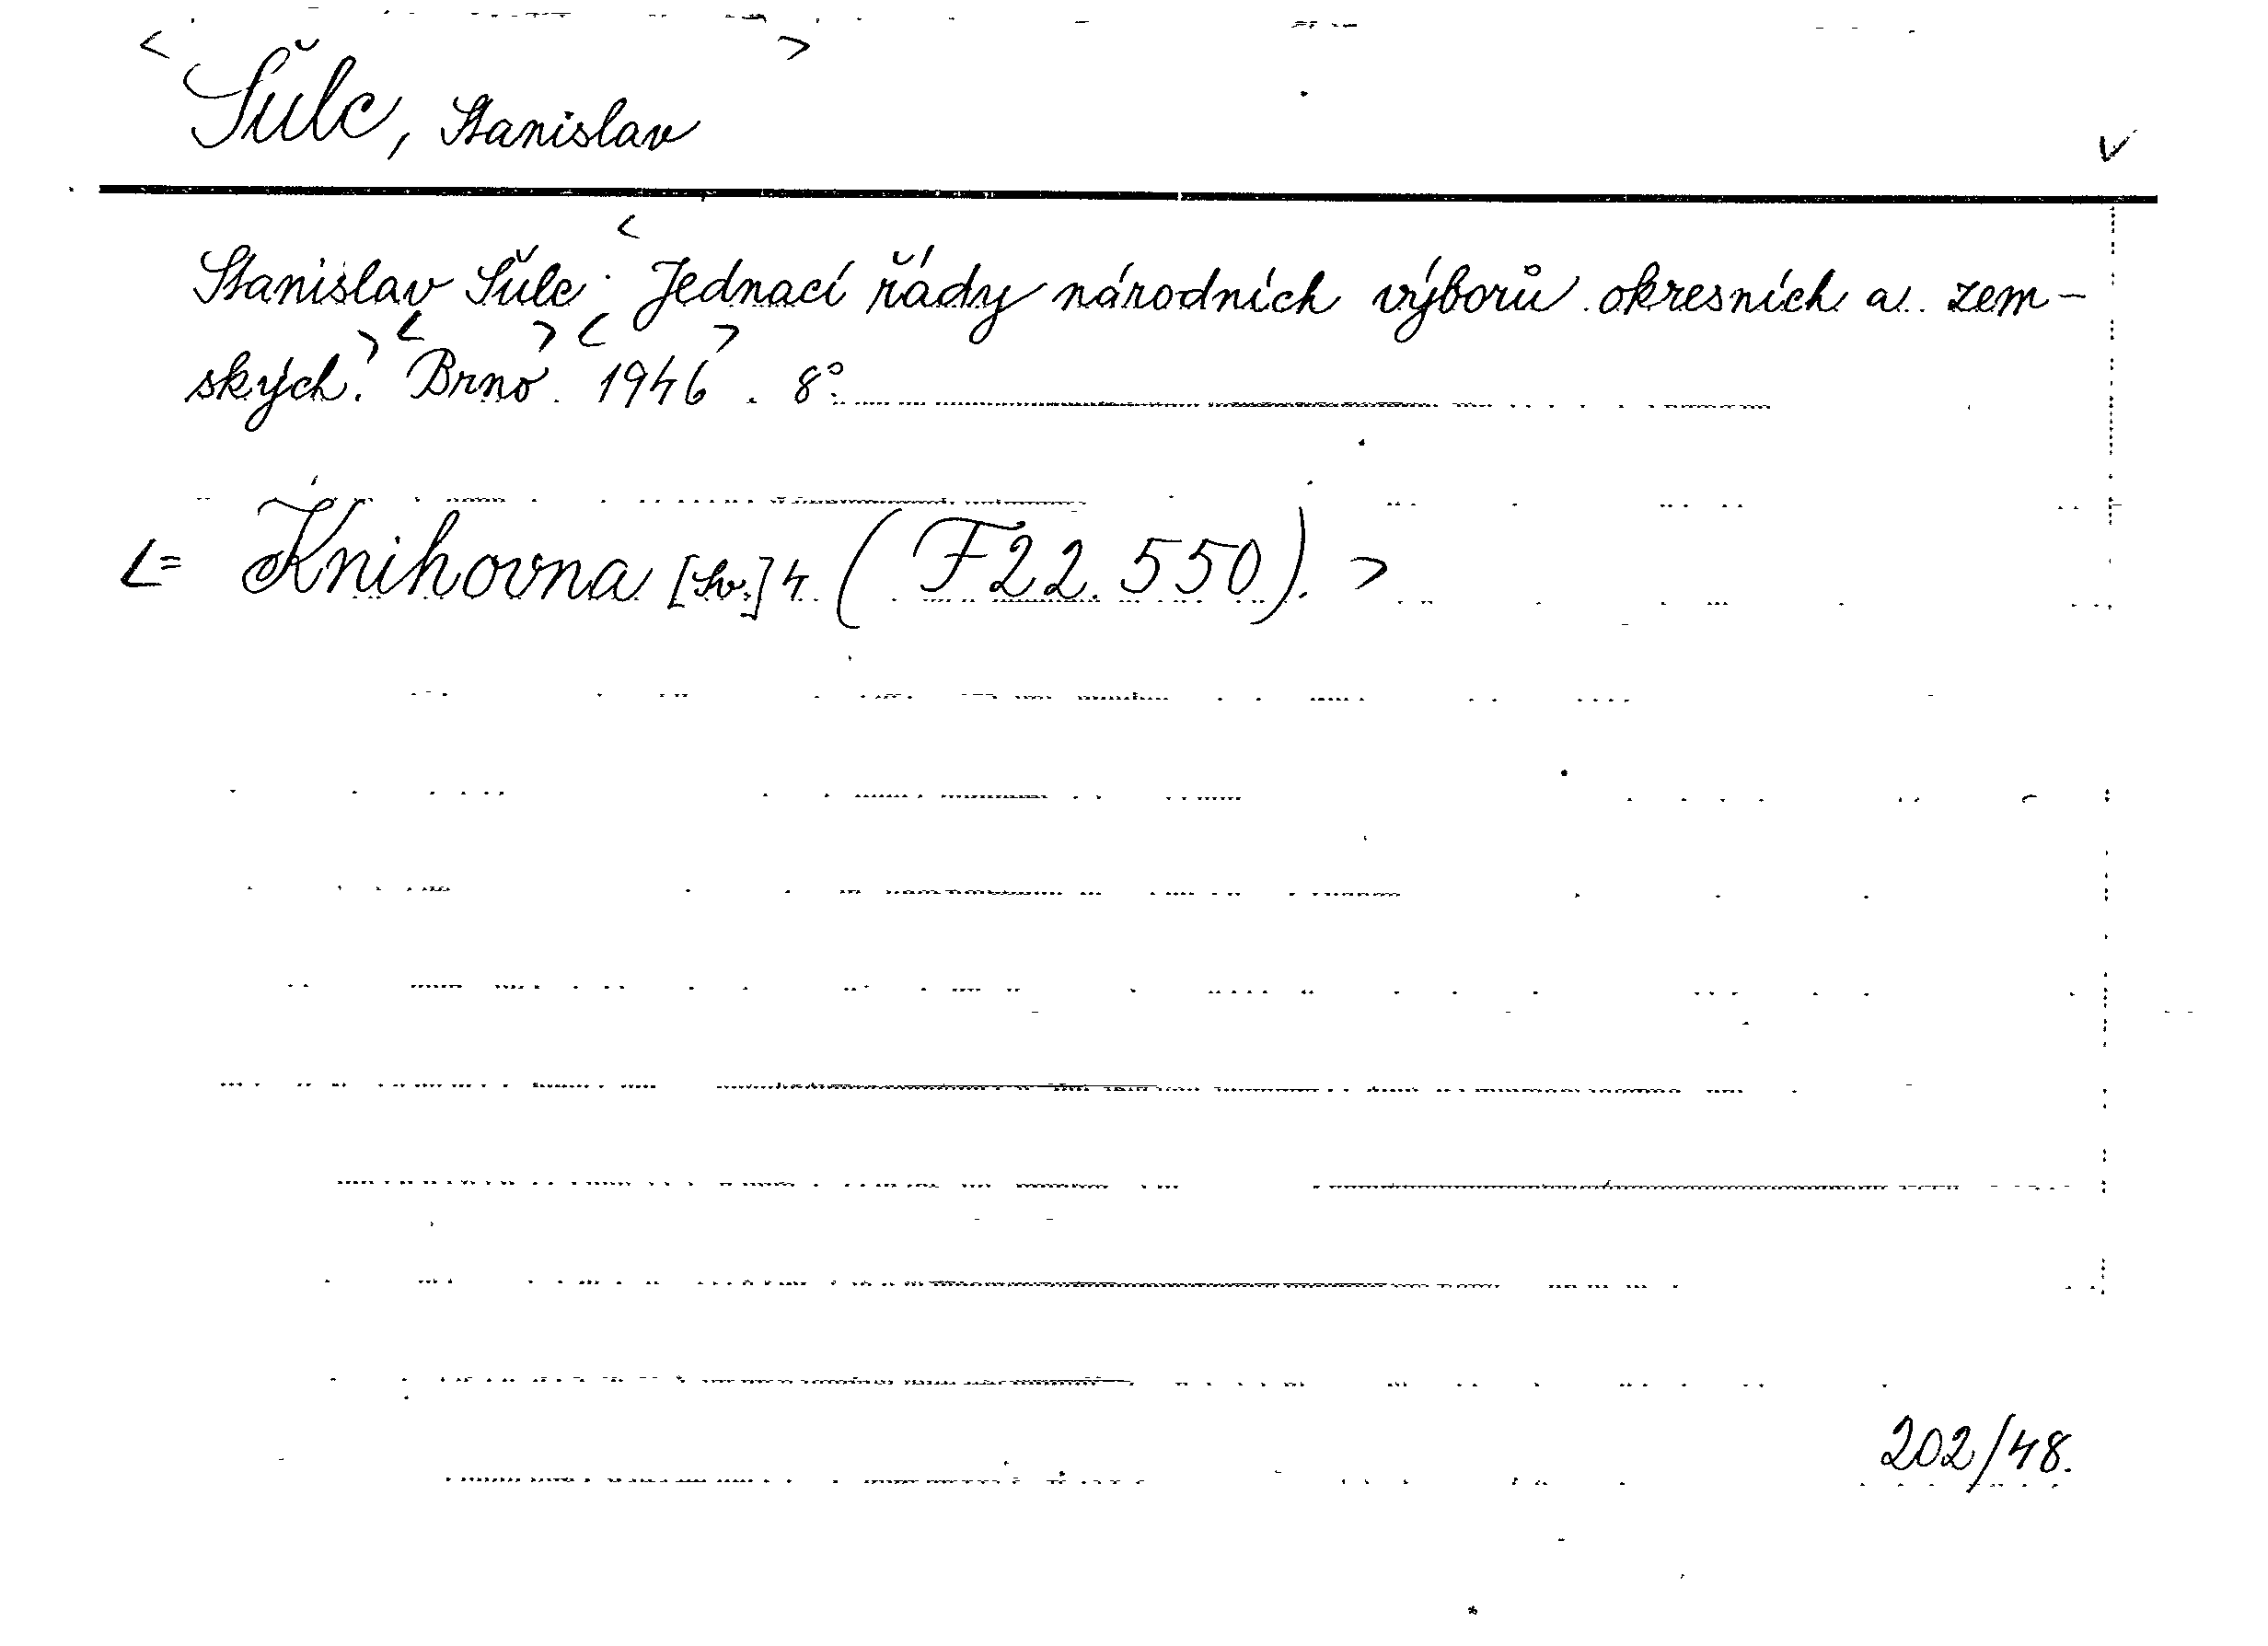 < Šulc, Stanislav >
v
Stanislav Šulc: < Jednací řády národních výborů okresních a zem-
ských. > < Brno > < 1946 > . 8°.
<= Knihovna [Sv.] 4. ( F 22.550). >
202/48.